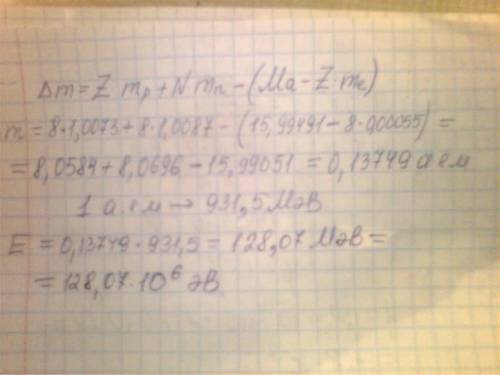 Δm = Z mp + N·mn − (Ma − Z·me)
m = 8·1,0073 + 8·1,0087 − (15,99491 − 8·0,00055) =
= 8,0584 + 8,0696 − 15,99051 = 0,13749 а ем
1 а.ем → 931,5 МэВ
E = 0,13749·931,5 = 128,07 МэВ =
= 128,07·10⁶ эВ.